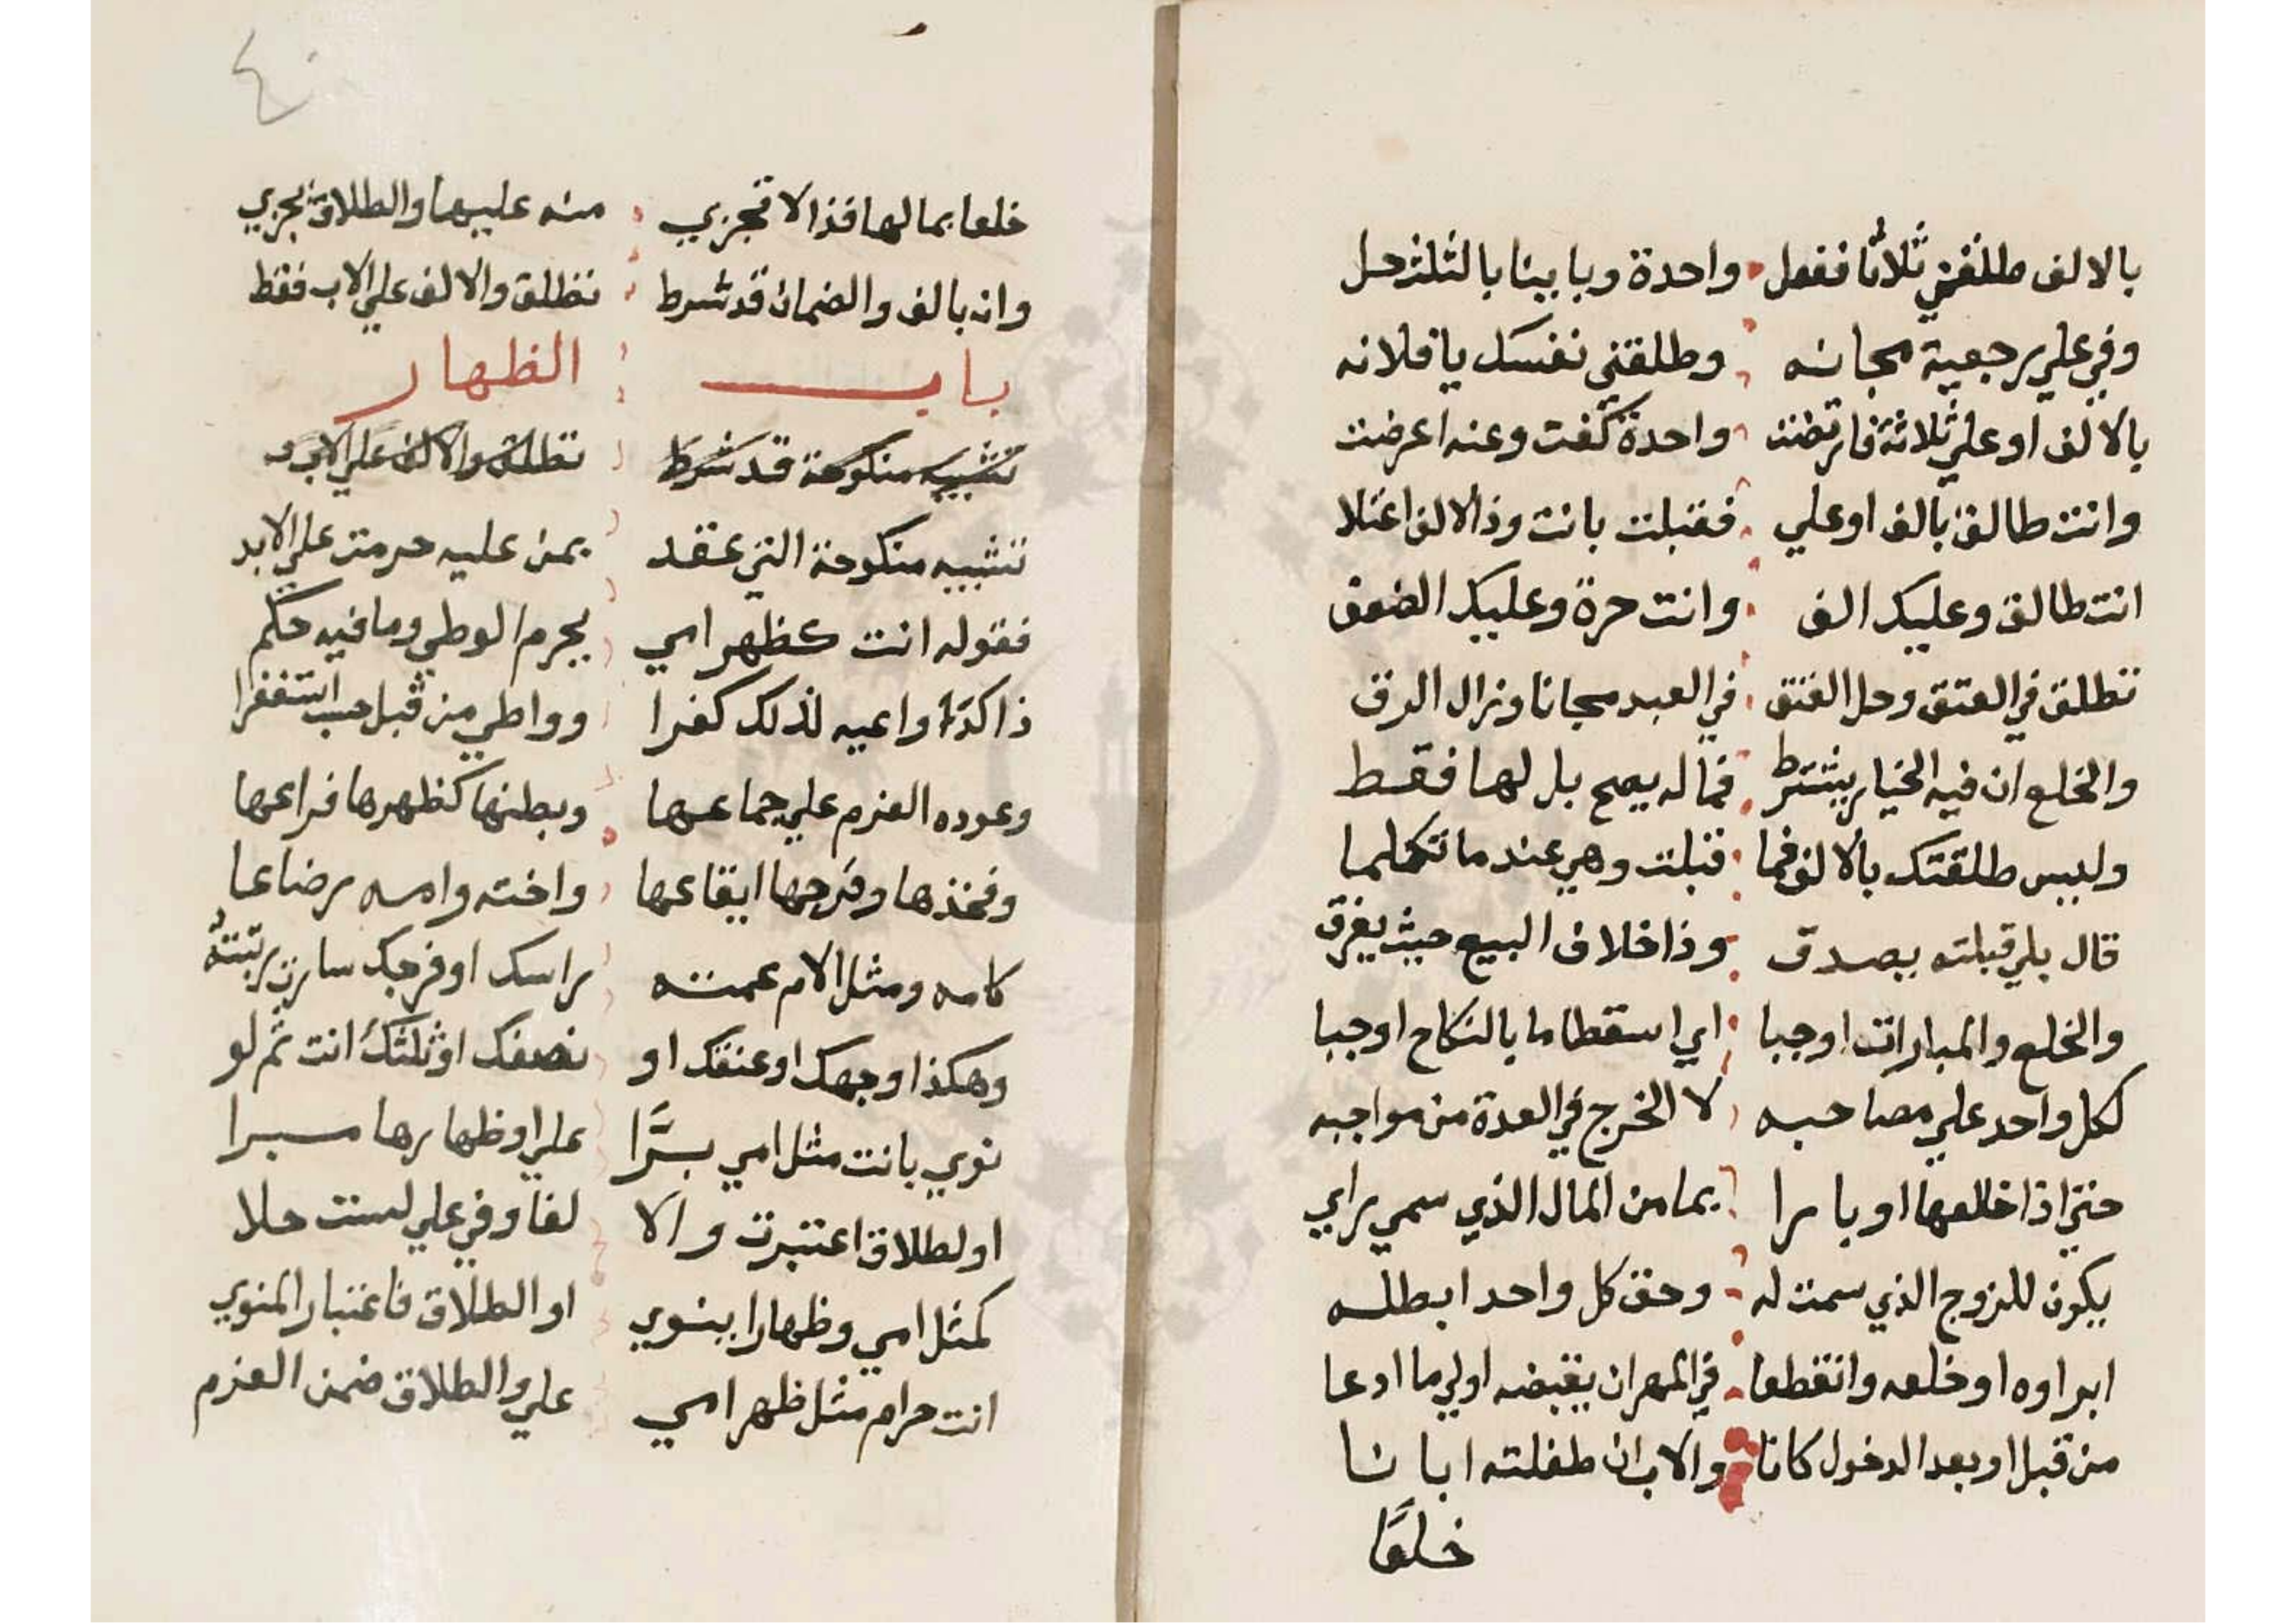 بالالف طلقني ثلاثا ففعل واحدة وبا بينا بالثلث حل
وفي علي رجعية مجانه وطلقني نفسك يا فلانه
بالالف او علي ثلاثة فارتضت واحدة كفت وعنه اعرضت
وانت طالق بالف او علي فقبلت بانت وذا الالف اعتلا
انت طالق وعليك الف وانت حرة وعليك الضعف
تطلق في العتق وحل العتق في العبد مجانا وزال الرق
والخلع ان فيه الخيار يشترط فما له يصح بل لها فقط
وليس طلقتك بالالف فما قبلت وهي عند ما تكلما
قال بلي قبلته يصدق وذا خلاف البيع حيث يفرق
والخلع والمبارات اوجبا اي اسقطا ما بالنكاح اوجبا
لكل واحد علي مصاحبه لا الخرج في العدة من مواجبه
حتي اذا خالعها او بارا بما من المال الذي سمي راي
يكون للزوج الذي سمت له وحق كل واحد ابطله
ابراوه او خلعه وانقطعا في المهر ان يقبضه اولي ما ادعا
من قبل او بعد الدخول كانا والاب ان طفلته ابانا
خلعًا
٤٠
خلعا بمالها فذا لا تجزي منه عليها والطلاق يجزي
وان بالف والضمان قد شرط تطلق والالف علي الاب فقط
باب الظهار
تشبيه منكوحة قد شرط تطلق والالف علي الاب
تشبيه منكوحة التي عقد بمن عليه حرمت علي الابد
فقوله انت كظهر امي يحرم الوطي وما فيه حكم
ذا كدا واعيه لذلك كفرا وواطي من قبل حسب استغفرا
وعوده العزم علي جماعها وبطنها كظهرها فراعها
وفخذها وفرجها ايقاعها واخته وامه رضاعا
كامه ومثل الام عمته راسك او فرجك سارت ربتته
وهكذا وجهك او عنقك او نصفك او ثلثك انت ثم لو
نوي بانت مثل امي برًّا علي او ظهارها مبرا
او لطلاق اعتبرت والا لغا وفي علي لست حلا
كمثل امي وظهارا ينوي او الطلاق فاعتبار المنوي
انت حرام مثل ظهر امي علي والطلاق ضمن العزم